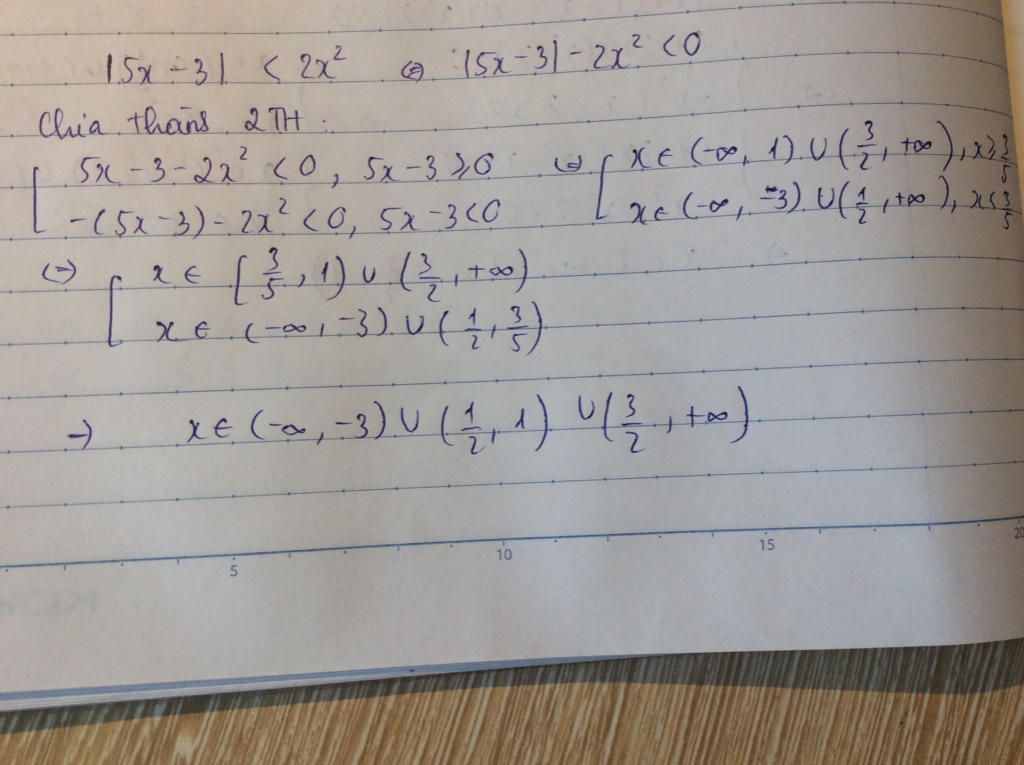 |5x-3| < 2x² ⇔ |5x-3| - 2x² < 0
Chia thành 2TH:
[ 5x-3-2x² < 0, 5x-3 ≥ 0 ⇔ [ x ∈ (-∞, 1) ∪ (3/2, +∞), x ≥ 3/5
-(5x-3) - 2x² < 0, 5x-3 < 0 x ∈ (-∞, -3) ∪ (1/2, +∞), x < 3/5
(-) [ x ∈ [3/5, 1) ∪ (3/2, +∞)
x ∈ (-∞, -3) ∪ (1/2, 3/5)
→ x ∈ (-∞, -3) ∪ (1/2, 1) ∪ (3/2, +∞)
5 10 15 20